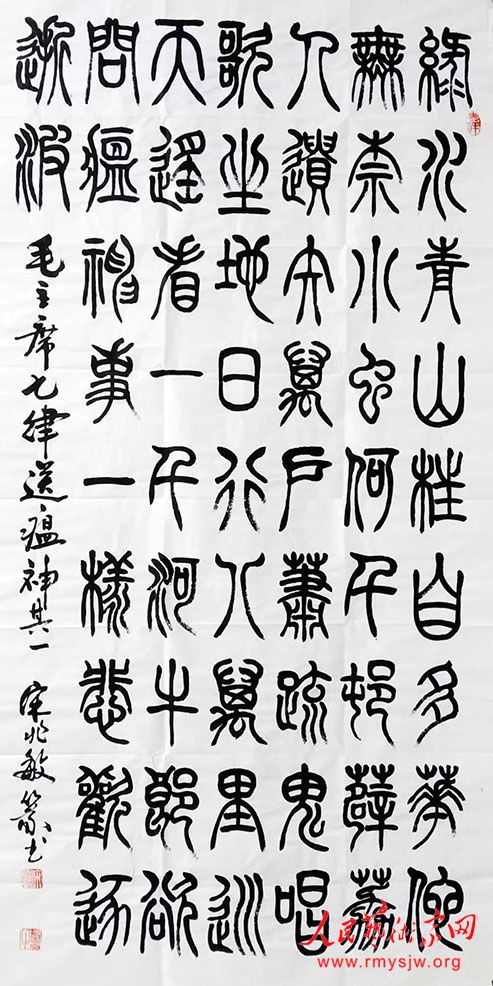 綠水青山枉自多華佗
無奈小虫何千邨薜荔
人遺矢萬戶蕭疏鬼唱
歌坐地日行八萬里巡
天遙看一千河牛郎欲
問瘟神事一樣悲歡逐
逝波
毛主席七律送瘟神其一 宋兆敏篆书
人民艺术家网
www.rmysjw.org